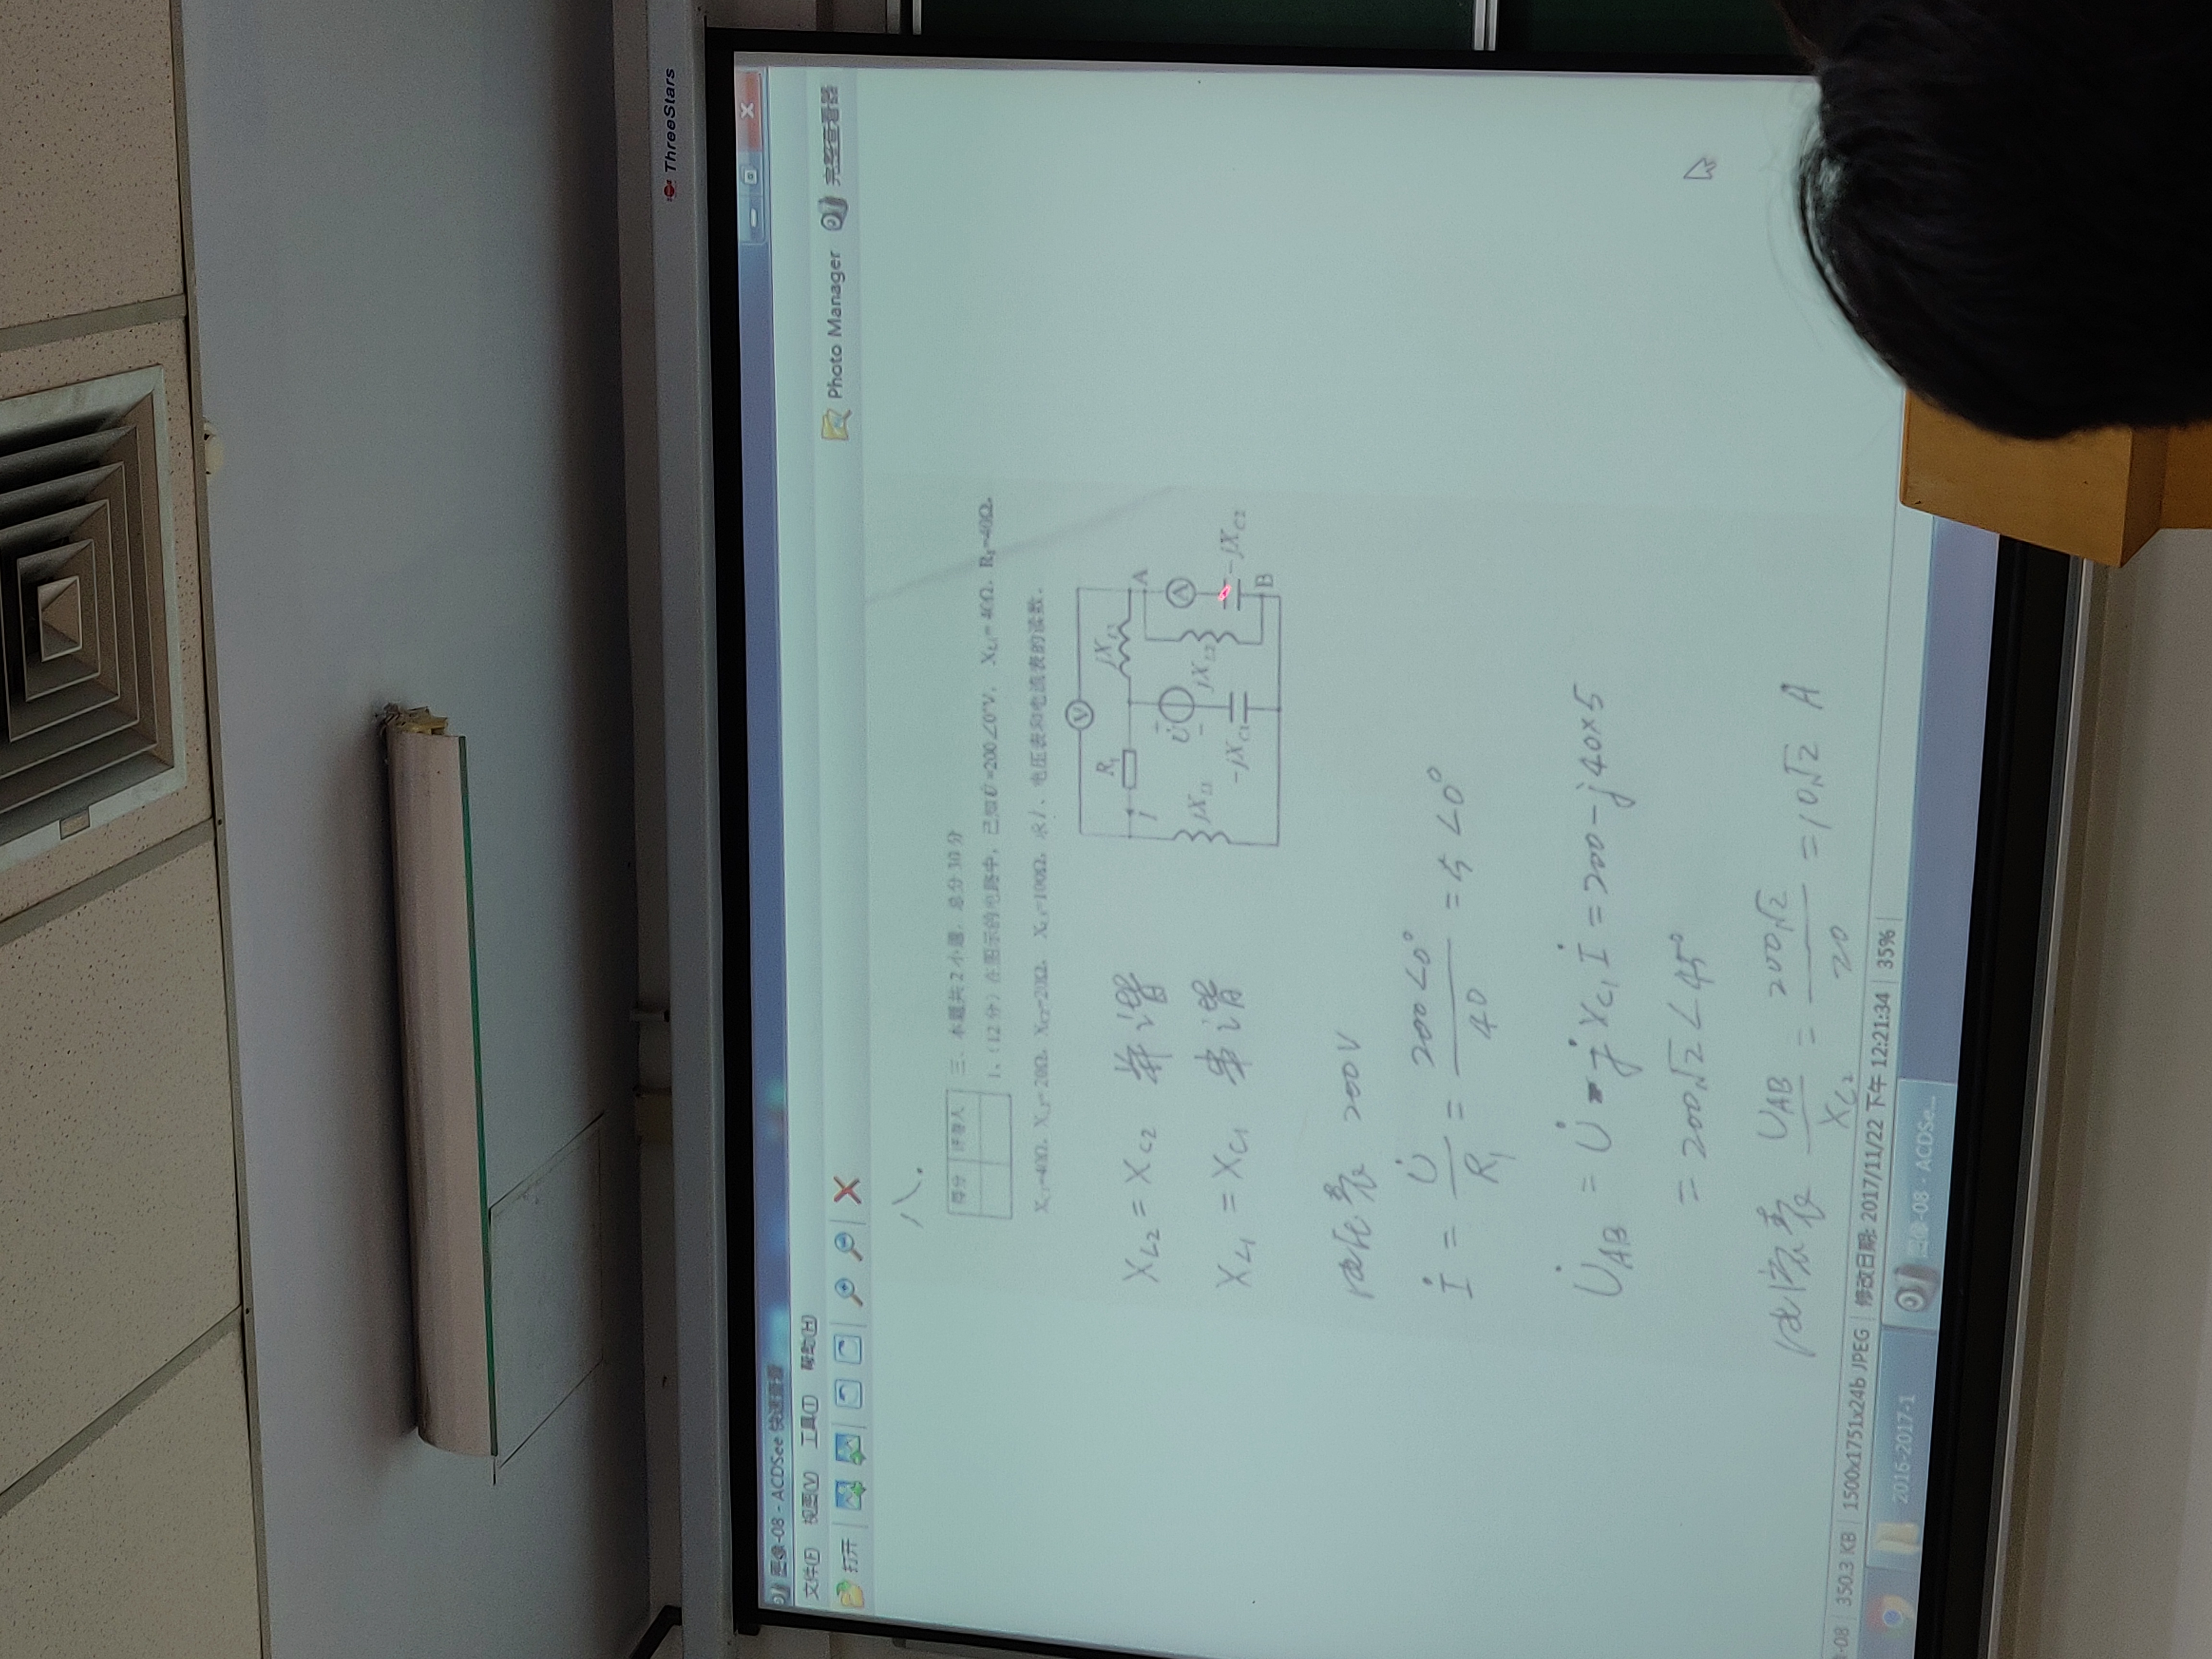 ThreeStars
图像-08 - ACDSee 快速查看
文件(F) 视图(V) 工具(T) 帮助(H)
打开
Photo Manager 完整查看器
八.
得分 评卷人
三、本题共2小题,总分30分
1、(12分)在图示的电路中,已知U̇=200∠0°V, X_L1=40Ω, R₁=40Ω,
X_C1=40Ω, X_L2=20Ω, X_C2=20Ω, X_L3=100Ω, 求İ、电压表和电流表的读数。
V
R₁ jX_L3
İ A
U̇ + - A
jX_L1 jX_L2
-jX_C1 -jX_C2
B
X_L2 = X_C2 并谐
X_L1 = X_C1 串谐
电压表 200V
İ = U̇/R₁ = 200∠0°/40 = 5∠0°
U̇_AB = U̇ - jX_C1 İ = 200-j40×5
= 200√2∠45°
电流表 U_AB/X_C2 = 200√2/20 = 10√2 A
-08 350.3 KB 1500x1751x24b JPEG 修改日期: 2017/11/22 下午 12:21:34 35%
2016-2017-1 图像-08 - ACDSe...